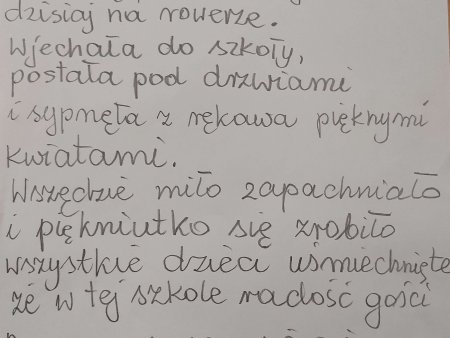 dzisiaj na rowerze.
Wjechała do szkoły,
postała pod drzwiami
i sypnęła z rękawa pięknymi
kwiatami.
Wszędzie miło zapachniało
i piękniutko się zrobiło
wszystkie dzieci uśmiechnięte
że w tej szkole radość gości